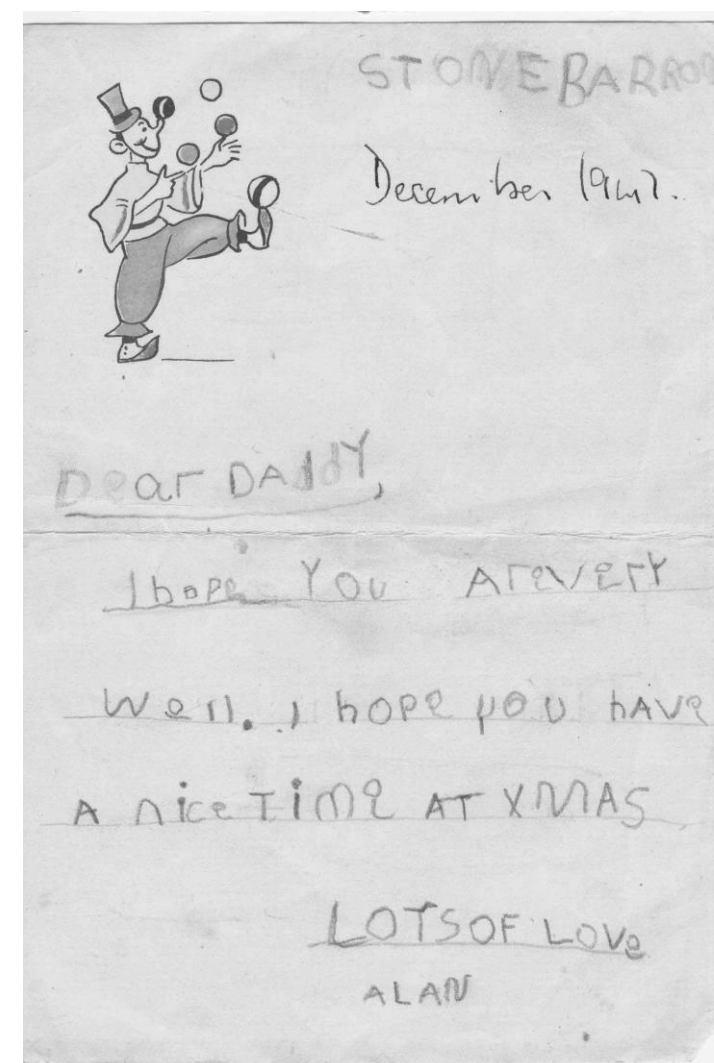 STONEBARROW
December 1947.
Dear DAddY,
I hope YOU AreverY
Well. I hope you hAve
A nice Time AT XMAS
LOTSOF LOVe
ALAN